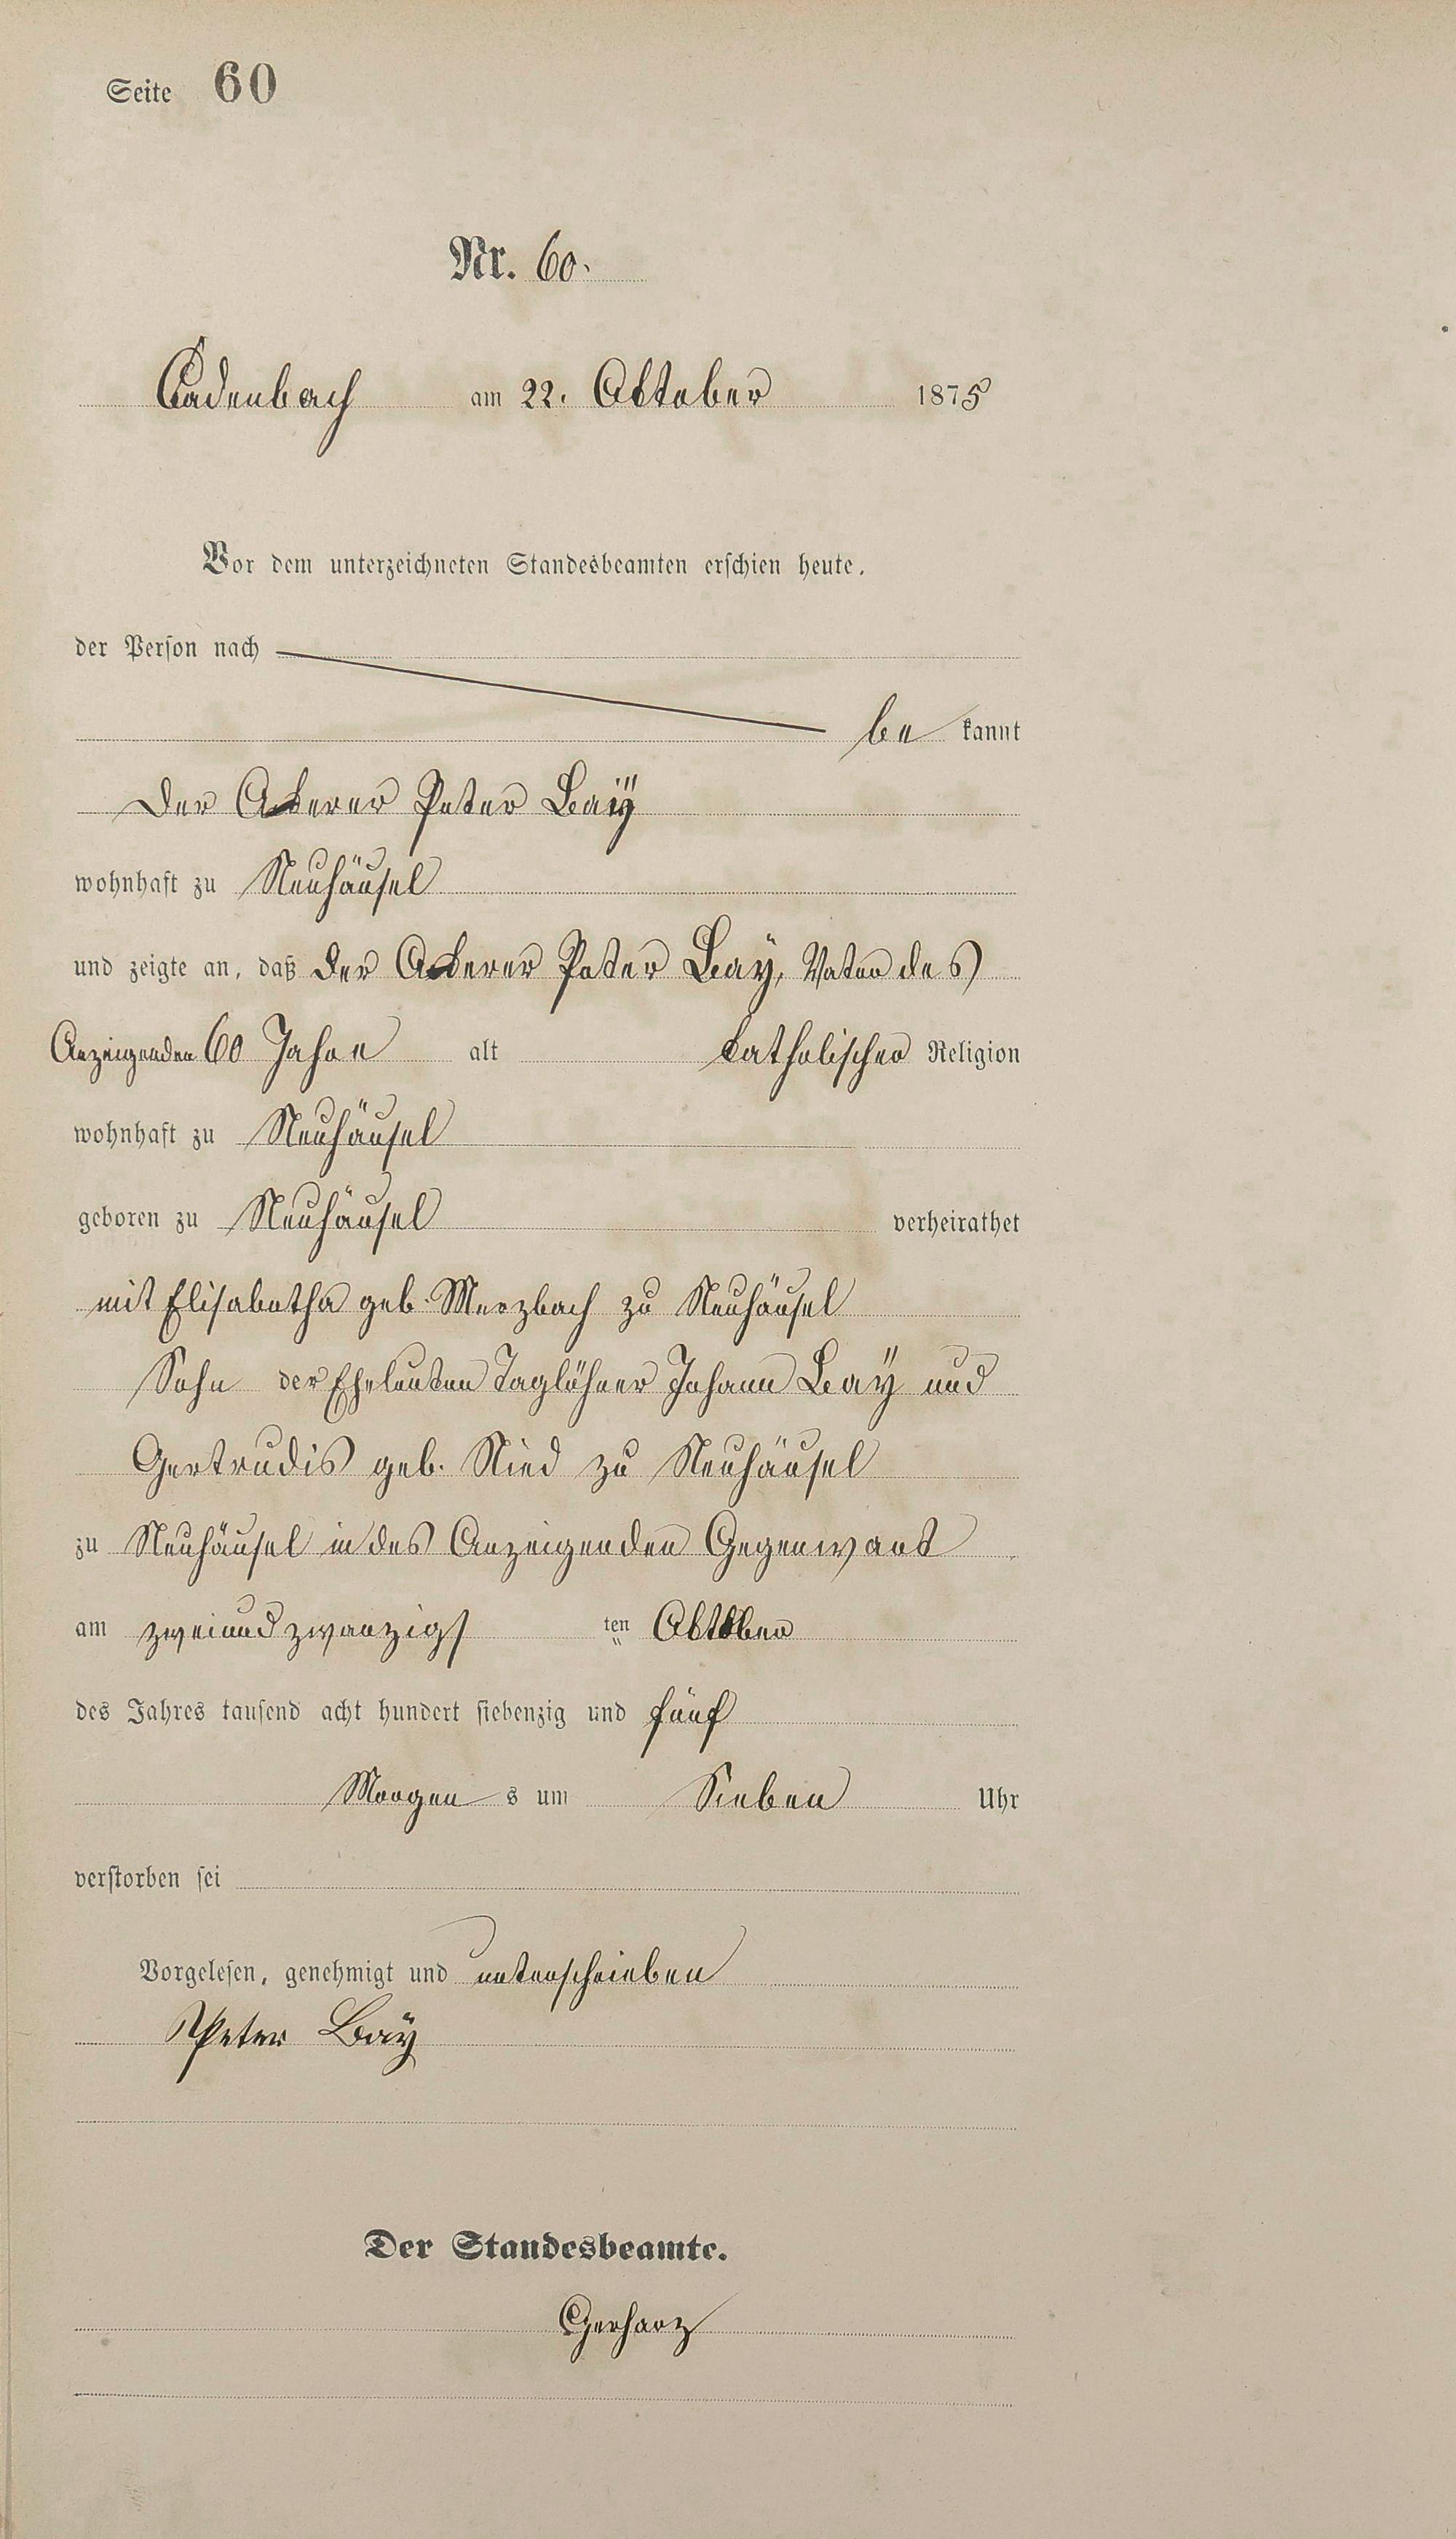 Seite 60
Nr. 60.
Cadenbach am 22. Oktober 1875
Vor dem unterzeichneten Standesbeamten erschien heute,
der Person nach
be kannt
Der Ackerer Peter Baÿ
wohnhaft zu Neuhäusel
und zeigte an, daß der Ackerer Peter Baÿ, Vater des
Anzeigenden 60 Jahre alt katholischer Religion
wohnhaft zu Neuhäusel
geboren zu Neuhäusel verheirathet
mit Elisabetha geb. Merzbach zu Neuhäusel
Sohn der Eheleuten Taglöhner Johann Baÿ und
Gertrudis geb. Nied zu Neuhäusel
zu Neuhäusel in des Anzeigenden Gegenwart
am zweiundzwanzigs ten Oktober
des Jahres tausend acht hundert siebenzig und fünf
Morgen s um Sieben Uhr
verstorben sei
Vorgelesen, genehmigt und unterschrieben
Peter Baÿ
Der Standesbeamte.
Gerharz